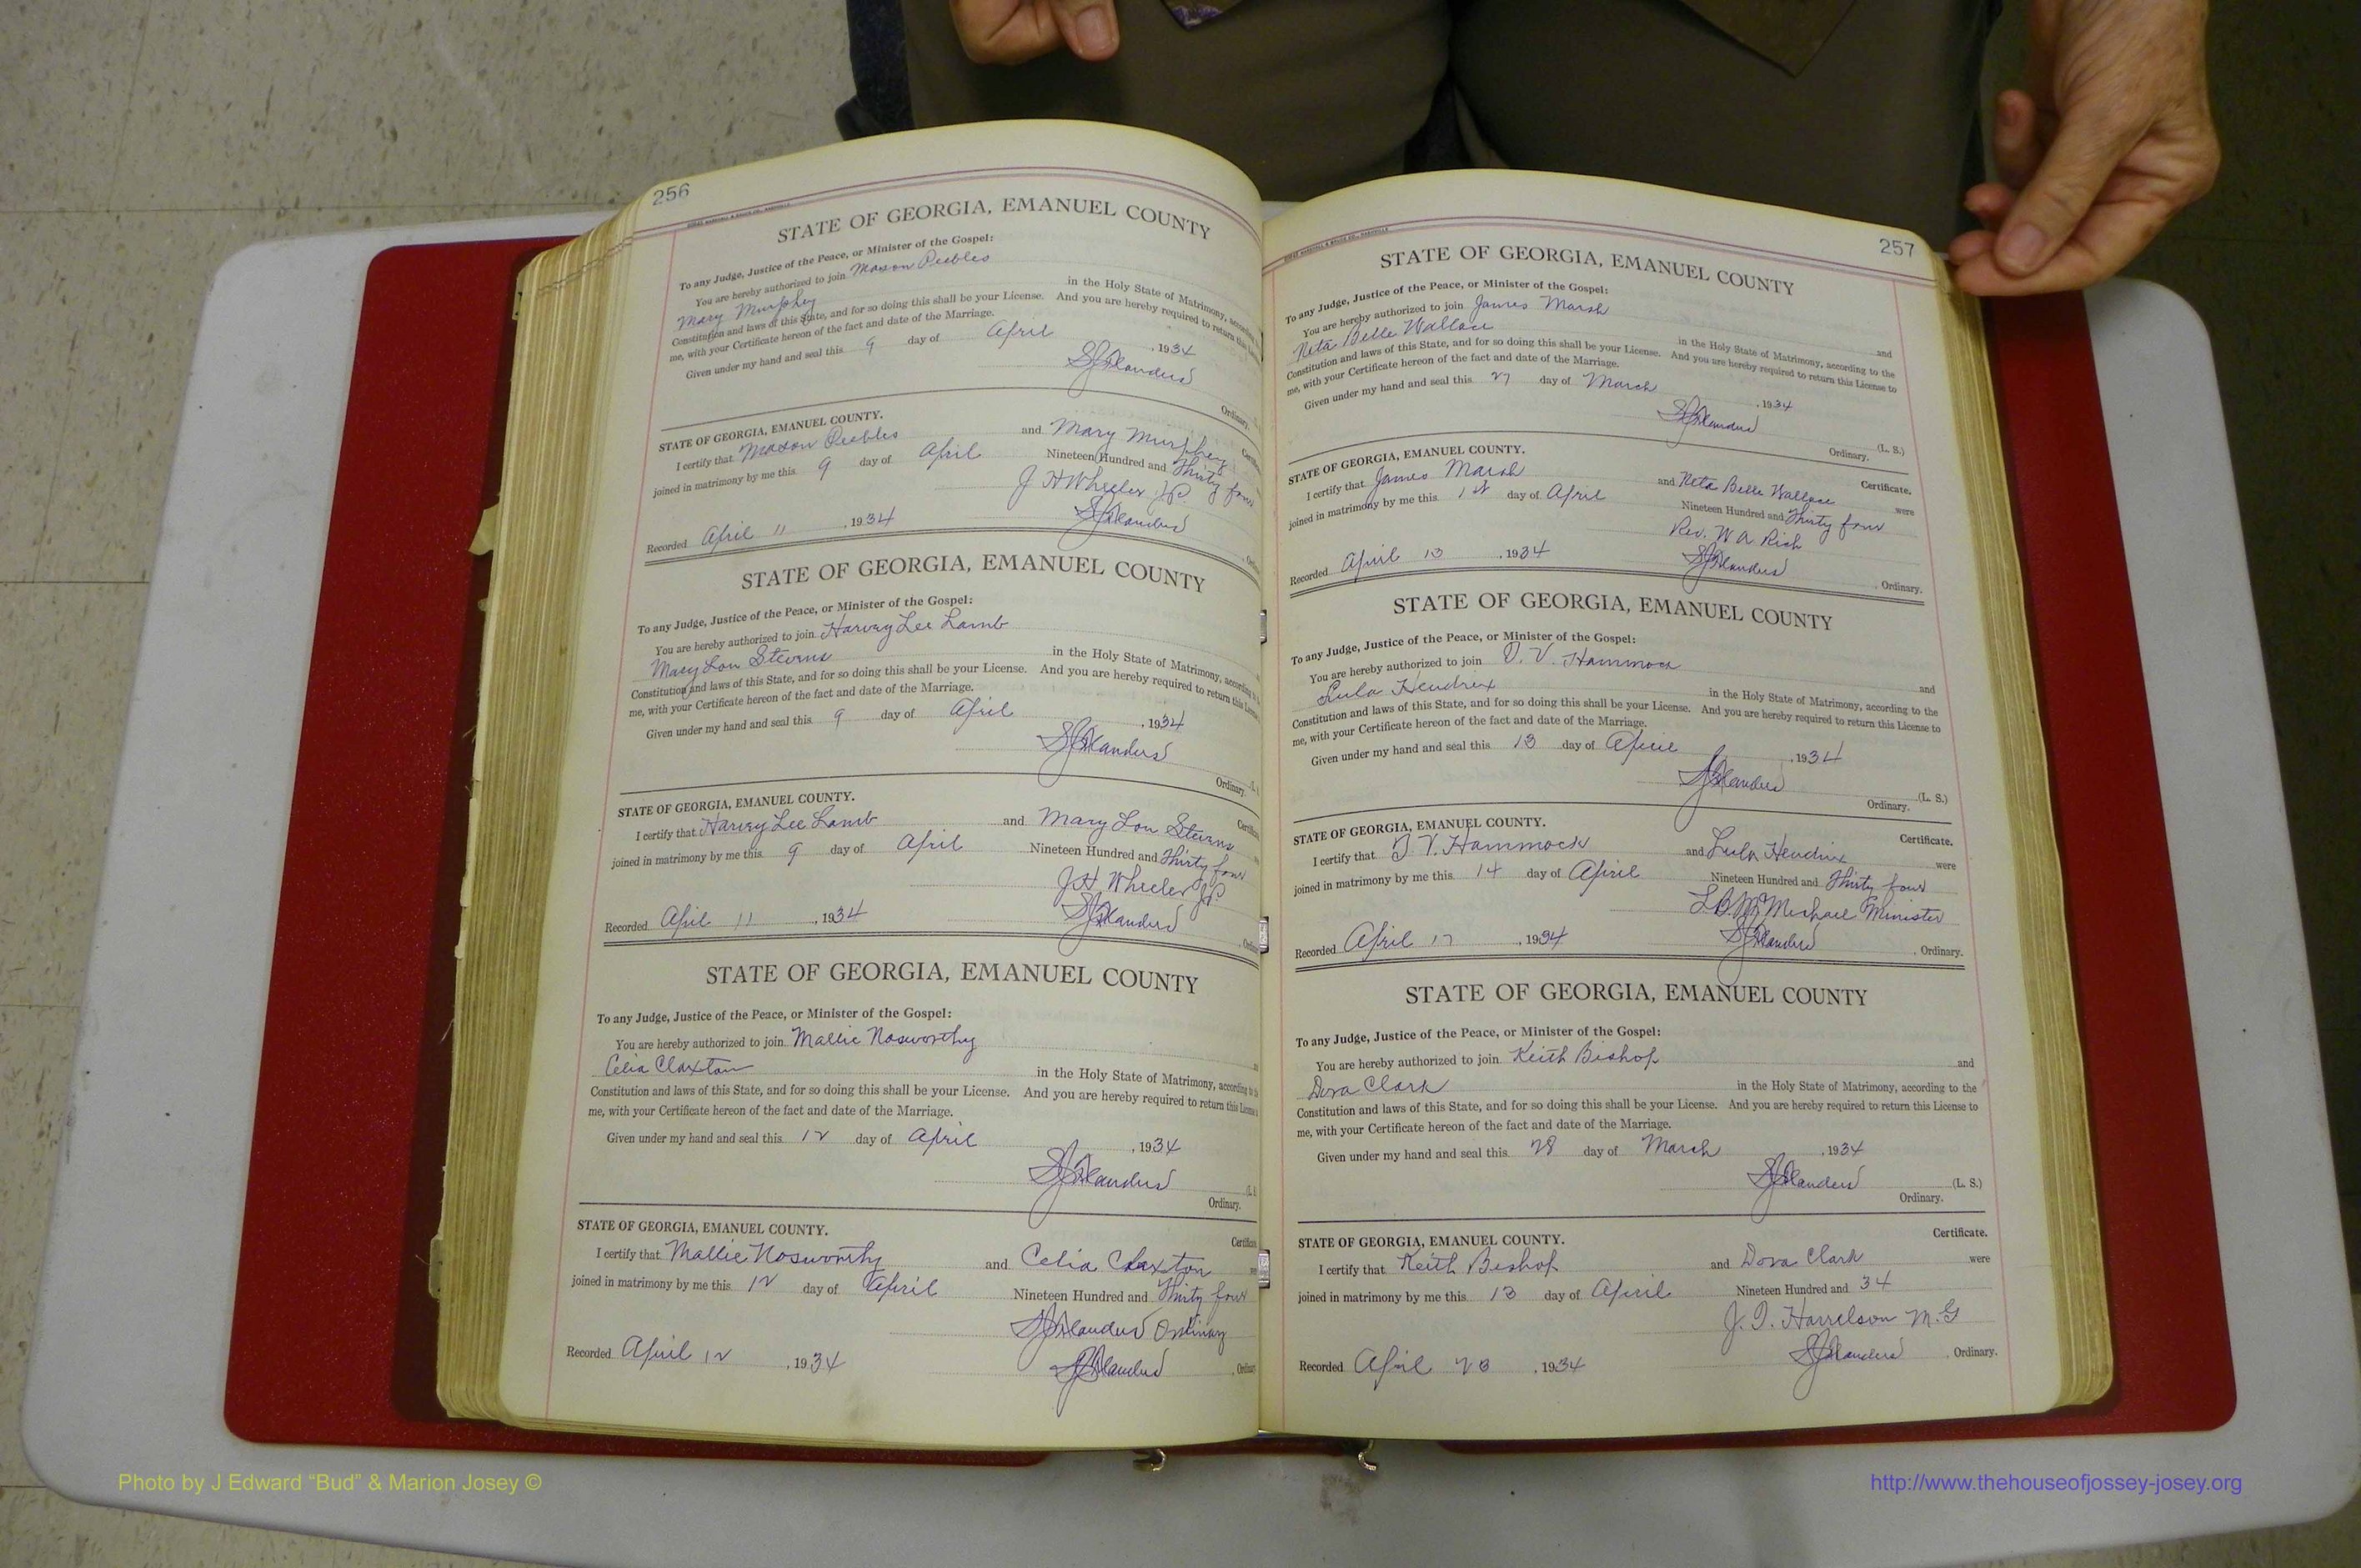 256
STATE OF GEORGIA, EMANUEL COUNTY
To any Judge, Justice of the Peace, or Minister of the Gospel:
You are hereby authorized to join Mason Peebles
Mary Murphy in the Holy State of Matrimony, according
Constitution and laws of this State, and for so doing this shall be your License. And you are hereby required to return this
me, with your Certificate hereon of the fact and date of the Marriage.
Given under my hand and seal this 9 day of April, 1934
Ordinary.
STATE OF GEORGIA, EMANUEL COUNTY.
I certify that Mason Peebles and Mary Murphey
joined in matrimony by me this 9 day of April Nineteen Hundred and Thirty four
J H Wheeler J.P.
Recorded April 11, 1934
STATE OF GEORGIA, EMANUEL COUNTY
To any Judge, Justice of the Peace, or Minister of the Gospel:
You are hereby authorized to join Harvey Lee Lamb
Mary Lou Stevens in the Holy State of Matrimony, according
Constitution and laws of this State, and for so doing this shall be your License. And you are hereby required to return this License
me, with your Certificate hereon of the fact and date of the Marriage.
Given under my hand and seal this 9 day of April, 1934
Ordinary.
STATE OF GEORGIA, EMANUEL COUNTY.
I certify that Harvey Lee Lamb and Mary Lou Stevens
joined in matrimony by me this 9 day of April Nineteen Hundred and Thirty four
J H Wheeler J.P.
Recorded April 11, 1934
STATE OF GEORGIA, EMANUEL COUNTY
To any Judge, Justice of the Peace, or Minister of the Gospel:
You are hereby authorized to join Mallie Nosworthy
Celia Claxton in the Holy State of Matrimony, according to the
Constitution and laws of this State, and for so doing this shall be your License. And you are hereby required to return this License
me, with your Certificate hereon of the fact and date of the Marriage.
Given under my hand and seal this 12 day of April, 1934
Ordinary.
STATE OF GEORGIA, EMANUEL COUNTY.
I certify that Mallie Nosworthy and Celia Claxton
joined in matrimony by me this 12 day of April Nineteen Hundred and Thirty four
Ordinary
Recorded April 12, 1934
257
STATE OF GEORGIA, EMANUEL COUNTY
To any Judge, Justice of the Peace, or Minister of the Gospel:
You are hereby authorized to join James Marsh and
Neta Belle Wallace in the Holy State of Matrimony, according to the
Constitution and laws of this State, and for so doing this shall be your License. And you are hereby required to return this License to
me, with your Certificate hereon of the fact and date of the Marriage.
Given under my hand and seal this 27 day of March, 1934
(L. S.)
Ordinary.
STATE OF GEORGIA, EMANUEL COUNTY. Certificate.
I certify that James Marsh and Neta Belle Wallace were
joined in matrimony by me this 1st day of April Nineteen Hundred and Thirty four
Rev. W A Rich
Recorded April 13, 1934 Ordinary.
STATE OF GEORGIA, EMANUEL COUNTY
To any Judge, Justice of the Peace, or Minister of the Gospel:
You are hereby authorized to join V. Hammock and
Lula Hendrix in the Holy State of Matrimony, according to the
Constitution and laws of this State, and for so doing this shall be your License. And you are hereby required to return this License to
me, with your Certificate hereon of the fact and date of the Marriage.
Given under my hand and seal this 13 day of April, 1934
(L. S.)
Ordinary.
STATE OF GEORGIA, EMANUEL COUNTY. Certificate.
I certify that V. Hammock and Lula Hendrix were
joined in matrimony by me this 14 day of April Nineteen Hundred and Thirty four
Minister
Recorded April 17, 1934 Ordinary.
STATE OF GEORGIA, EMANUEL COUNTY
To any Judge, Justice of the Peace, or Minister of the Gospel:
You are hereby authorized to join Keith Bishop and
Dora Clark in the Holy State of Matrimony, according to the
Constitution and laws of this State, and for so doing this shall be your License. And you are hereby required to return this License to
me, with your Certificate hereon of the fact and date of the Marriage.
Given under my hand and seal this 28 day of March, 1934
(L. S.)
Ordinary.
STATE OF GEORGIA, EMANUEL COUNTY. Certificate.
I certify that Keith Bishop and Dora Clark were
joined in matrimony by me this 13 day of April Nineteen Hundred and 34
J. I. Harrelson M.G
Recorded April 23, 1934 Ordinary.
Photo by J Edward “Bud” & Marion Josey ©
http://www.thehouseofjossey-josey.org